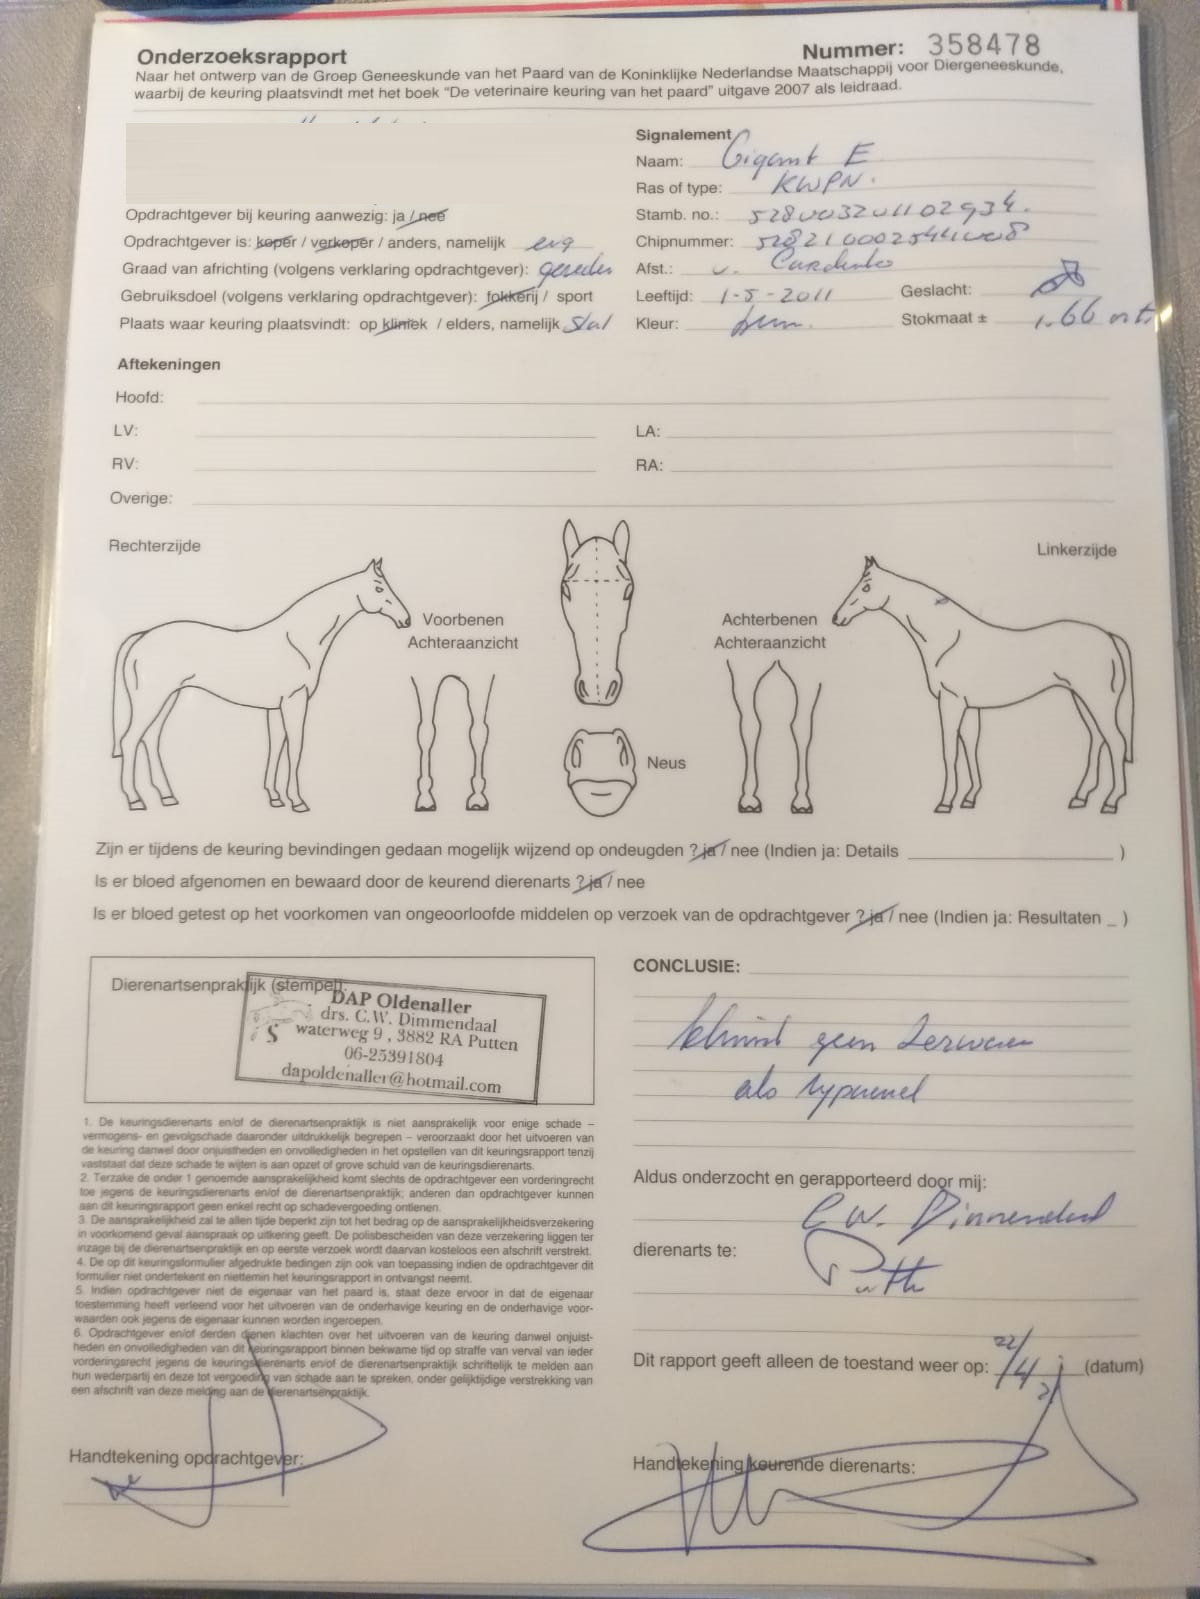 Onderzoeksrapport
Nummer: 358478
Naar het ontwerp van de Groep Geneeskunde van het Paard van de Koninklijke Nederlandse Maatschappij voor Diergeneeskunde,
waarbij de keuring plaatsvindt met het boek “De veterinaire keuring van het paard” uitgave 2007 als leidraad.
Opdrachtgever bij keuring aanwezig: ja / nee
Opdrachtgever is: koper / verkoper / anders, namelijk eig
Graad van africhting (volgens verklaring opdrachtgever): gereden
Gebruiksdoel (volgens verklaring opdrachtgever): fokkerij / sport
Plaats waar keuring plaatsvindt: op kliniek / elders, namelijk Stal
Signalement
Naam: Gigant E
Ras of type: KWPN.
Stamb. no.: 528003201102934.
Chipnummer: 528210002544008
Afst.: v.
Leeftijd: 1-5-2011 Geslacht:
Kleur: Stokmaat ± 1.66 mtr
Aftekeningen
Hoofd:
LV: LA:
RV: RA:
Overige:
Rechterzijde
Linkerzijde
Voorbenen
Achteraanzicht
Achterbenen
Achteraanzicht
Neus
Zijn er tijdens de keuring bevindingen gedaan mogelijk wijzend op ondeugden ? ja / nee (Indien ja: Details )
Is er bloed afgenomen en bewaard door de keurend dierenarts ? ja / nee
Is er bloed getest op het voorkomen van ongeoorloofde middelen op verzoek van de opdrachtgever ? ja / nee (Indien ja: Resultaten _ )
Dierenartsenpraktijk (stempel):
DAP Oldenaller
drs. C.W. Dimmendaal
waterweg 9 , 3882 RA Putten
06-25391804
dapoldenaller@hotmail.com
1. De keuringsdierenarts en/of de dierenartsenpraktijk is niet aansprakelijk voor enige schade –
vermogens- en gevolgschade daaronder uitdrukkelijk begrepen – veroorzaakt door het uitvoeren van
de keuring danwel door onjuistheden en onvolledigheden in het opstellen van dit keuringsrapport tenzij
vaststaat dat deze schade te wijten is aan opzet of grove schuld van de keuringsdierenarts.
2. Terzake de onder 1 genoemde aansprakelijkheid komt slechts de opdrachtgever een vorderingrecht
toe jegens de keuringsdierenarts en/of de dierenartsenpraktijk; anderen dan opdrachtgever kunnen
aan dit keuringsrapport geen enkel recht op schadevergoeding ontlenen.
3. De aansprakelijkheid zal te allen tijde beperkt zijn tot het bedrag op de aansprakelijkheidsverzekering
in voorkomend geval aanspraak op uitkering geeft. De polisbescheiden van deze verzekering liggen ter
inzage bij de dierenartsenpraktijk en op eerste verzoek wordt daarvan kosteloos een afschrift verstrekt.
4. De op dit keuringsformulier afgedrukte bedingen zijn ook van toepassing indien de opdrachtgever dit
formulier niet ondertekent en niettemin het keuringsrapport in ontvangst neemt.
5. Indien opdrachtgever niet de eigenaar van het paard is, staat deze ervoor in dat de eigenaar
toestemming heeft verleend voor het uitvoeren van de onderhavige keuring en de onderhavige voor-
waarden ook jegens de eigenaar kunnen worden ingeroepen.
6. Opdrachtgever en/of derden dienen klachten over het uitvoeren van de keuring danwel onjuist-
heden en onvolledigheden van dit keuringsrapport binnen bekwame tijd op straffe van verval van ieder
vorderingsrecht jegens de keuringsdierenarts en/of de dierenartsenpraktijk schriftelijk te melden aan
hun wederpartij en deze tot vergoeding van schade aan te spreken, onder gelijktijdige verstrekking van
een afschrift van deze melding aan de dierenartsenpraktijk.
Handtekening opdrachtgever:
CONCLUSIE:
klinisch geen bezwaren
als rijpaard
Aldus onderzocht en gerapporteerd door mij:
C.W. Dimmendaal
dierenarts te: Putten
Dit rapport geeft alleen de toestand weer op: 22/4 21 (datum)
Handtekening keurende dierenarts: